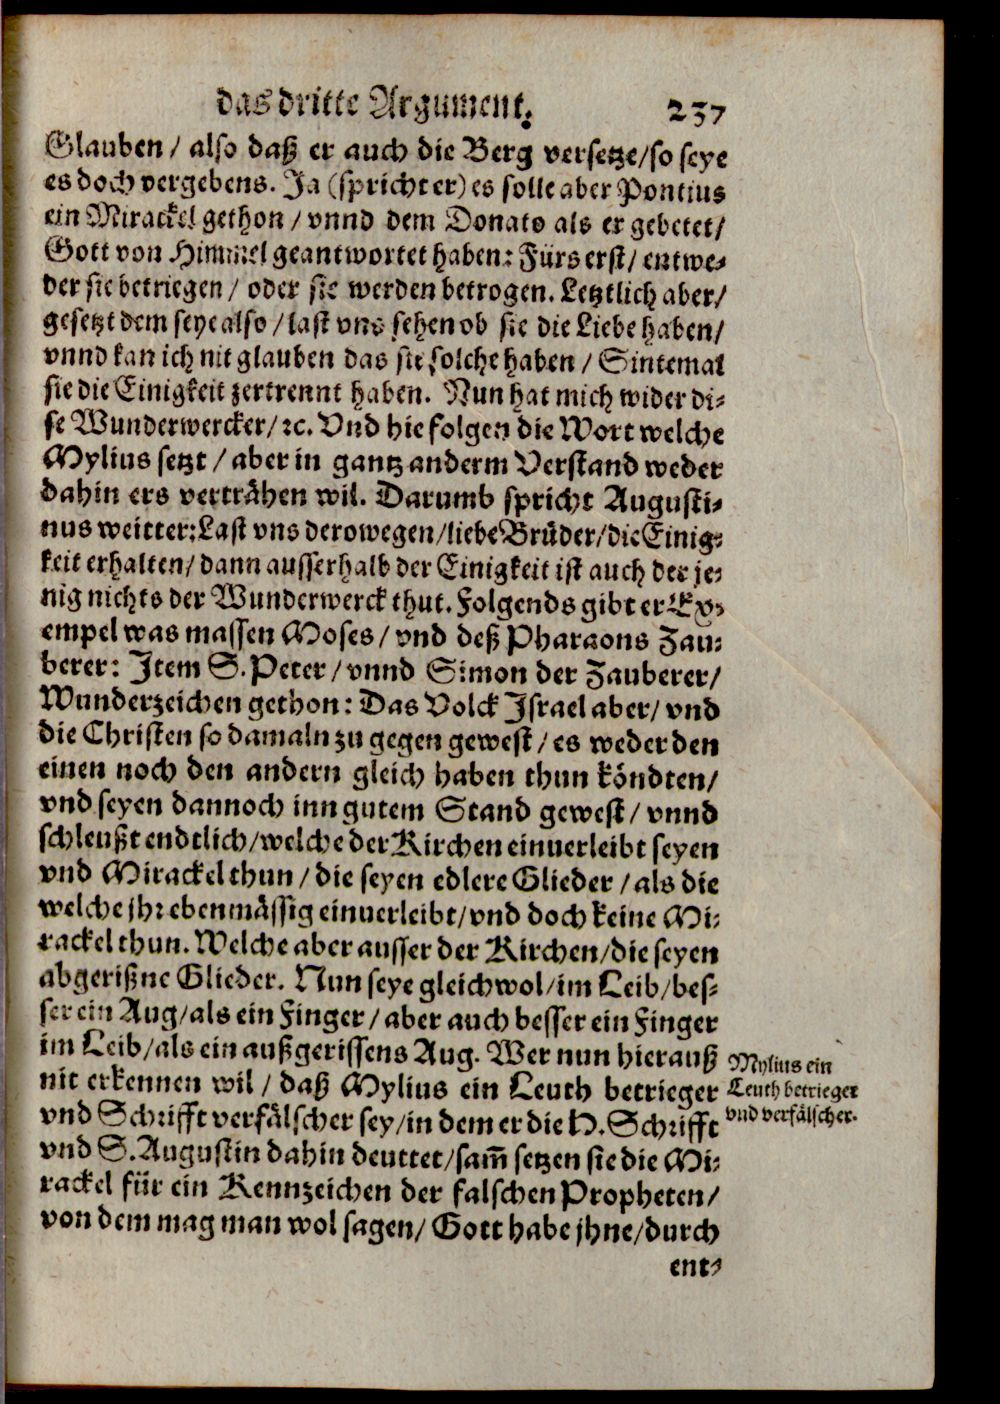 das dritte Argument. 237
Glauben / also daß er auch die Berg versetze/so seye
es doch vergebens. Ja (spricht er) es solle aber Pontius
ein Mirackel gethon / vnnd dem Donato als er gebetet/
Gott von Himmel geantwortet haben: Fürs erst/ entwe-
der sie betriegen / oder sie werden betrogen. Letztlich aber/
gesetzt dem seye also / last vns sehen ob sie die Liebe haben/
vnnd kan ich nit glauben das sie solche haben / Sintemal
sie die Einigkeit zertrennt haben. Nun hat mich wider di-
se Wunderwercker/ ꝛc. Vnd hie folgen die Wort welche
Mylius setzt / aber in gantz anderm Verstand weder
dahin ers verträhen wil. Darumb spricht Augusti-
nus weitter: Last vns derowegen/liebe Brüder/die Einig-
keit erhalten/ dann ausserhalb der Einigkeit ist auch der je-
nig nichts der Wunderwerck thut. Folgends gibt er Ex-
empel was massen Moses / vnd deß Pharaons Zau-
berer: Item S. Peter / vnnd Simon der Zauberer/
Wunderzeichen gethon: Das Volck Israel aber/ vnd
die Christen so damaln zu gegen gewest / es weder den
einen noch den andern gleich haben thun köndten/
vnd seyen dannoch inn gutem Stand gewest/ vnnd
schleußt endtlich/welche der Kirchen einuerleibt seyen
vnd Mirackel thun / die seyen edlere Glieder / als die
welche jhr ebenmässig einuerleibt/vnd doch keine Mi-
rackel thun. Welche aber ausser der Kirchen/die seyen
abgerißne Glieder. Nun seye gleichwol/im Leib/bes-
ser ein Aug/als ein Finger / aber auch besser ein Finger
im Leib/als ein außgerissens Aug. Wer nun hierauß
nit erkennen wil / daß Mylius ein Leuth betrieger
vnd Schrifft verfälscher sey/in dem er die H. Schrifft
vnd S. Augustin dahin deuttet/sam̃ setzen sie die Mi-
rackel für ein Kennzeichen der falschen Propheten/
von dem mag man wol sagen/ Gott habe jhne/durch
ent-
Mylius ein
Leuth betrieger
vnd verfälscher.